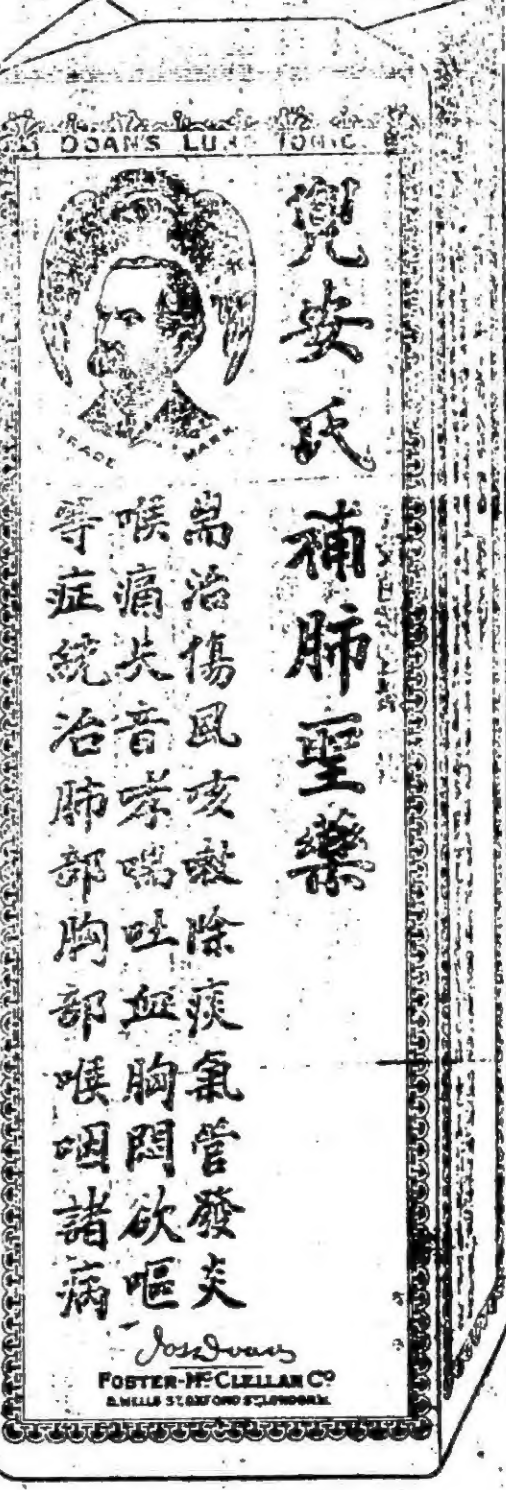 DOAN'S LUNG TONIC
兜安氏
補肺聖藥
TRADE MARK
耑治傷風咳嗽除痰氣管發炎
喉痛失音哮喘吐血胸悶欲嘔
等症統治肺部胸部喉咽諸病
Jos Doan
FOSTER-McCLELLAN Co
8, WELLS ST. OXFORD ST. LONDON W.